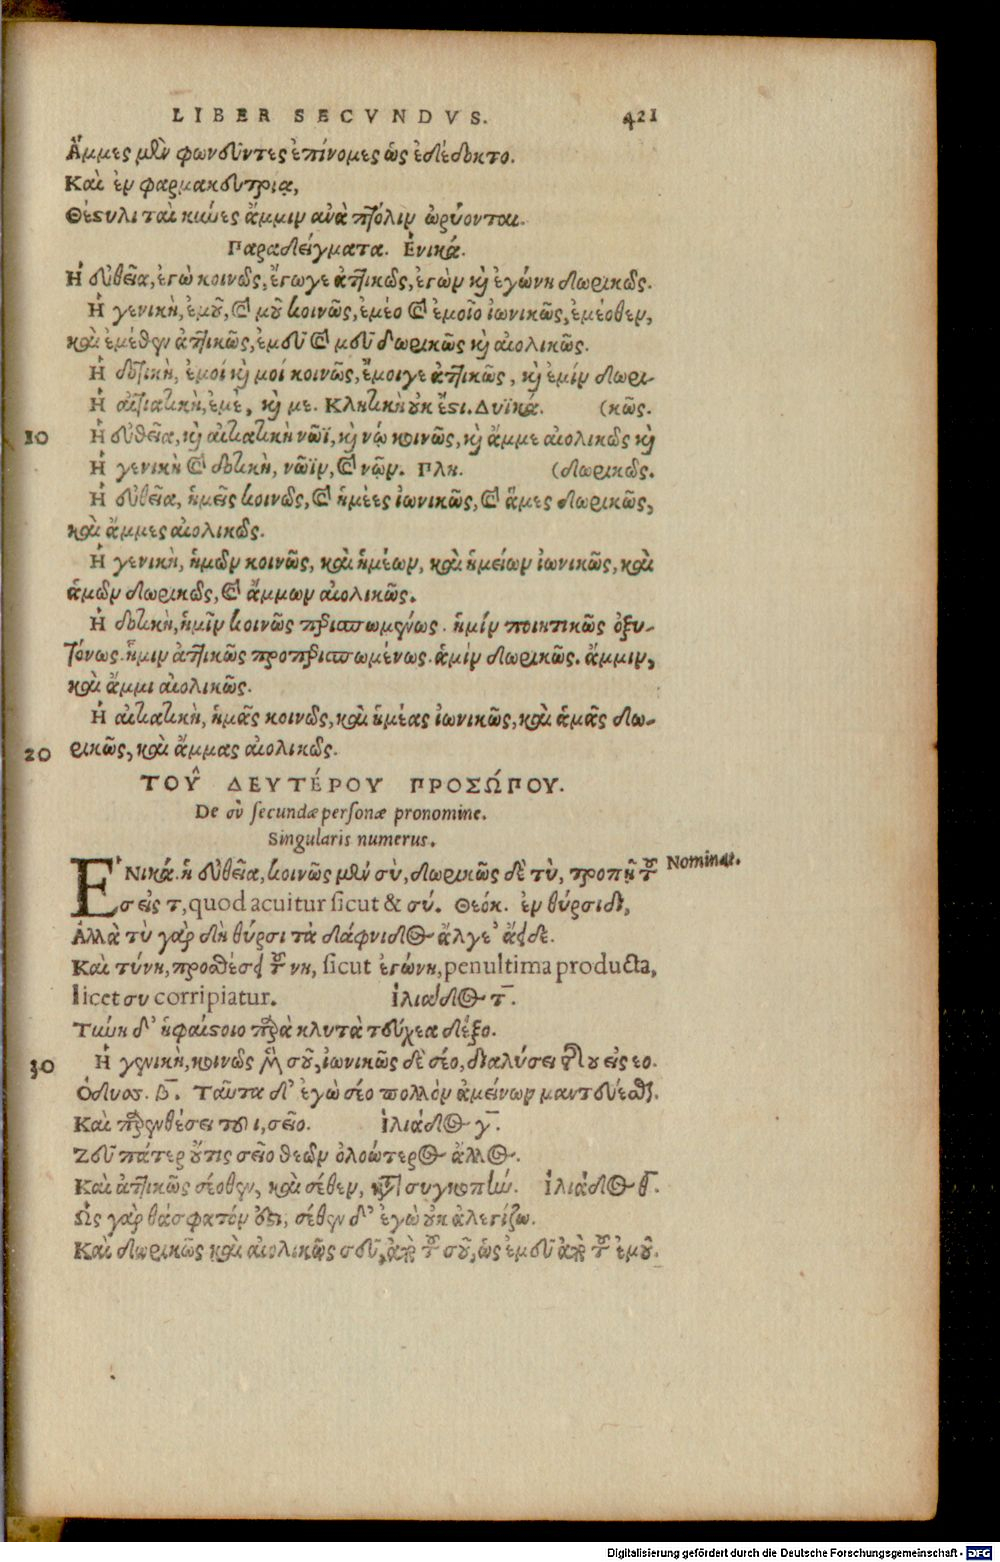 LIBER SECVNDVS. 421
Ἄμμες μὲν φωνεῦντες ἐπίνομες ὡς ἐδέδοκτο.
Καὶ ἐν φαρμακευτρίᾳ,
Θέστυλι ταὶ κύνες ἄμμιν ἀνὰ πτόλιν ὠρύονται.
Παραδείγματα. Ἑνικά.
Ἡ εὐθεῖα, ἐγὼ κοινῶς, ἔγωγε ἀττικῶς, ἐγὼν καὶ ἐγώνη δωρικῶς.
Ἡ γενικὴ, ἐμοῦ, καὶ μοῦ κοινῶς, ἐμέο καὶ ἐμοῖο ἰωνικῶς, ἐμέοθεν,
καὶ ἐμέθεν ἀττικῶς, ἐμεῦ καὶ μεῦ δωρικῶς καὶ αἰολικῶς.
Ἡ δοτικὴ, ἐμοί καὶ μοί κοινῶς, ἔμοιγε ἀττικῶς, καὶ ἐμίν δωρι-
Ἡ αἰτιατικὴ, ἐμέ, καὶ με. Κλητικὴ οὐκ ἔστι. Δυϊκά. (κῶς.
10 Ἡ εὐθεῖα, καὶ αἰτιατικὴ νῶϊ, καὶ νώ κοινῶς, καὶ ἄμμε αἰολικῶς καὶ
Ἡ γενικὴ καὶ δοτικὴ, νῶϊν, καὶ νῷν. Πλη. (δωρικῶς.
Ἡ εὐθεῖα, ἡμεῖς κοινῶς, καὶ ἡμέες ἰωνικῶς, καὶ ἅμες δωρικῶς,
καὶ ἄμμες αἰολικῶς.
Ἡ γενικὴ, ἡμῶν κοινῶς, καὶ ἡμέων, καὶ ἡμείων ἰωνικῶς, καὶ
ἁμῶν δωρικῶς, καὶ ἄμμων αἰολικῶς.
Ἡ δοτικὴ, ἡμῖν κοινῶς περισπωμένως. ἡμίν ποιητικῶς ὀξυ-
τόνως. ἥμιν ἀττικῶς προπερισπωμένως. ἁμίν δωρικῶς. ἄμμιν,
καὶ ἄμμι αἰολικῶς.
Ἡ αἰτιατικὴ, ἡμᾶς κοινῶς, καὶ ἡμέας ἰωνικῶς, καὶ ἁμᾶς δω-
20 ρικῶς, καὶ ἄμμας αἰολικῶς.
ΤΟΥ͂ ΔΕΥΤΈΡΟΥ ΠΡΟΣΏΠΟΥ.
De σὺ secundæ personæ pronomine.
Singularis numerus.
ἙΝικά. ἡ εὐθεῖα, κοινῶς μὲν σὺ, δωρικῶς δὲ τὺ, τροπῇ τοῦ Nominat.
σ εἰς τ, quod acuitur sicut & σύ. Θεόκ. ἐν θύρσιδι,
Ἀλλὰ τὺ γὰρ δὴ θύρσι τὰ δάφνιδος ἄλγε' ἄειδε.
Καὶ τύνη, προσθέσει τοῦ νη, sicut ἐγώνη, penultima producta,
licet συ corripiatur. Ἰλιάδος τ̅.
Τύνη δ' ἡφαίστοιο πάρα κλυτὰ τεύχεα δέξο.
30 Ἡ γενικὴ, κοινῶς μὲν σοῦ, ἰωνικῶς δὲ σέο, διαλύσει τῆς ου εἰς εο.
Ὀδυσσ. β̅. Ταῦτα δ' ἐγὼ σέο πολλὸν ἀμείνων μαντεύεσθαι.
Καὶ παρενθέσει τοῦ ι, σεῖο. Ἰλιάδος γ̅.
Ζεῦ πάτερ οὔτις σεῖο θεῶν ὀλοώτερος ἄλλος.
Καὶ ἀττικῶς σέοθεν, καὶ σέθεν, κατὰ συγκοπήν. Ἰλιάδος θ̅.
Ὣς γὰρ θέσφατόν ἐστι, σέθεν δ' ἐγὼ οὐκ ἀλεγίζω.
Καὶ δωρικῶς καὶ αἰολικῶς σεῦ, ἀπὸ τοῦ σοῦ, ὡς ἐμεῦ ἀπὸ τοῦ ἐμοῦ.
Digitalisierung gefördert durch die Deutsche Forschungsgemeinschaft - DFG